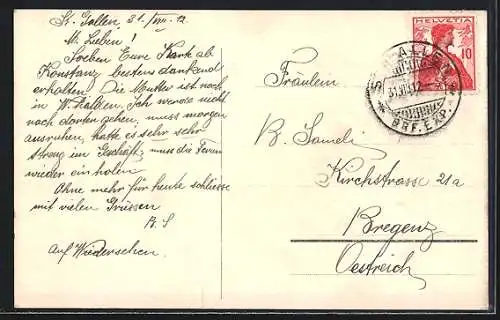 St. Gallen, 31./VIII. 12.
M. Lieben!
Soeben Eure Karte ab
Konstanz bestens dankend
erhalten. Die Mutter ist noch
in W. halten. Ich werde nicht
noch dorten gehen, muss morgen
ausruhen, hatte es sehr sehr
streng im Geschäft, muss die Ferien
wieder ein holen.
Ohne mehr für heute schliesse
mit vielen Grüssen
B. S
auf Wiedersehen.
HELVETIA
10
ST. GALLEN
BRF. EXP.
Fräulein
B.
Kirchstrasse 21a
Bregenz
Oestreich